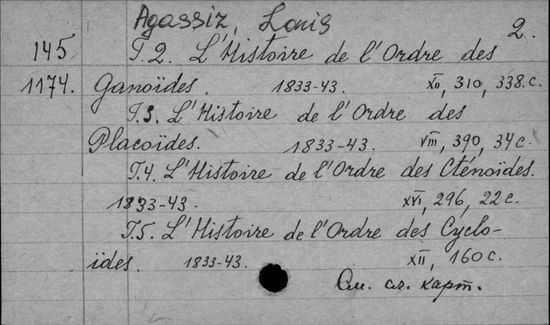 Agassiz, Louis 2.
145 T.2. L'Histoire de l'Ordre des
1174. Ganoïdes. 1833-43. XII, 310, 338.c.
T.3. L'Histoire de l'Ordre des
Placoïdes. 1833-43. VIII, 390, 34 c.
T.4. L'Histoire de l'Ordre des Cténoïdes.
1833-43. XVI, 296, 22 c.
T.5. L'Histoire de l'Ordre des Cyclo-
ïdes. 1833-43. XII, 160 c.
См. сл. карт.